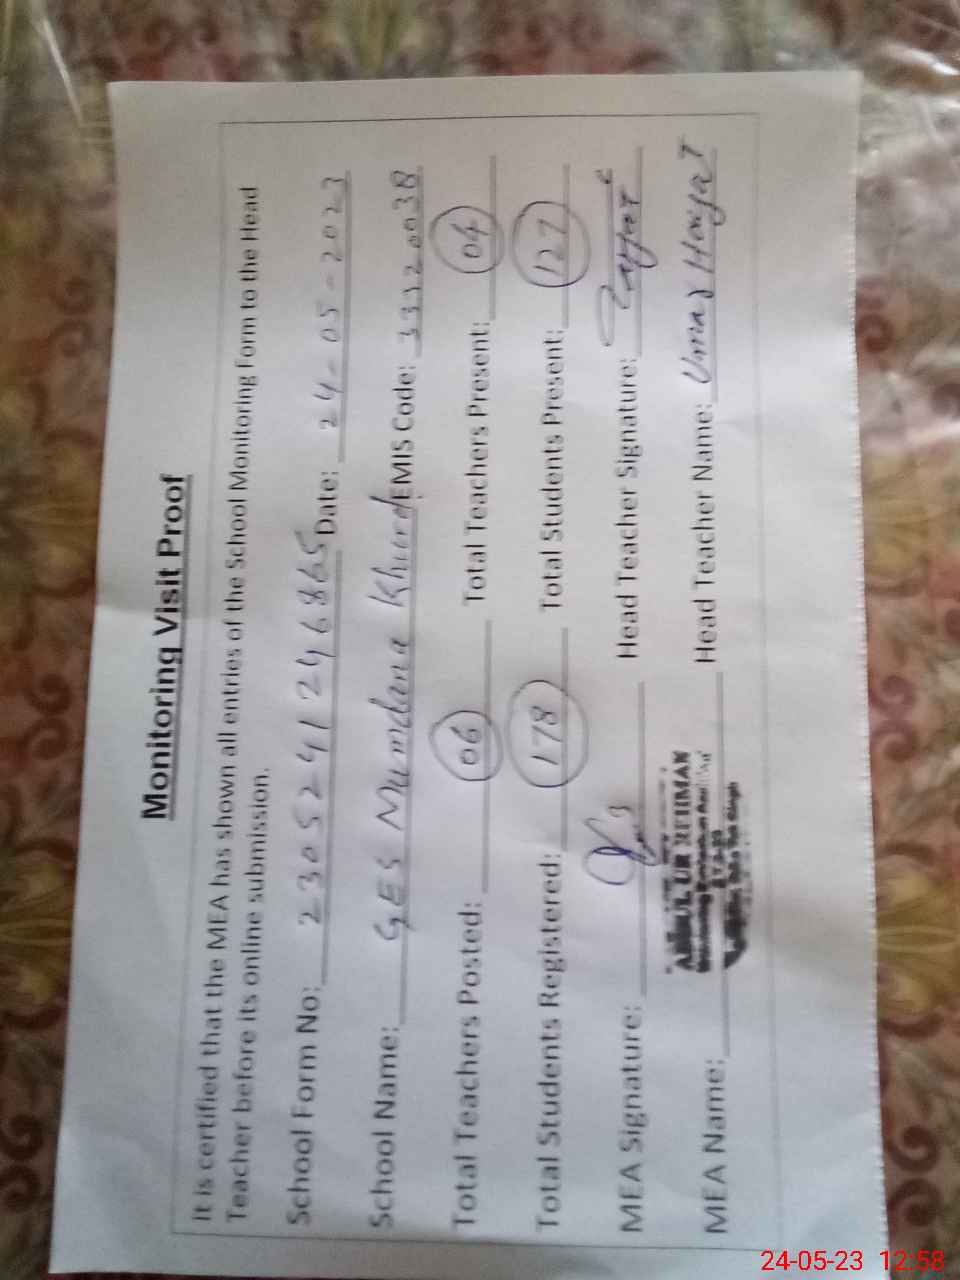 Monitoring Visit Proof
It is certified that the MEA has shown all entries of the School Monitoring Form to the Head
Teacher before its online submission.
School Form No: 2305241246865 Date: 24-05-2023
School Name: GES Mumdana Khurd EMIS Code: 33320038
Total Teachers Posted: 06 Total Teachers Present: 04
Total Students Registered: 178 Total Students Present: 127
MEA Signature: Head Teacher Signature:
ABDUL UR REHMAN
MEA Name: Head Teacher Name:
24-05-23 12:58